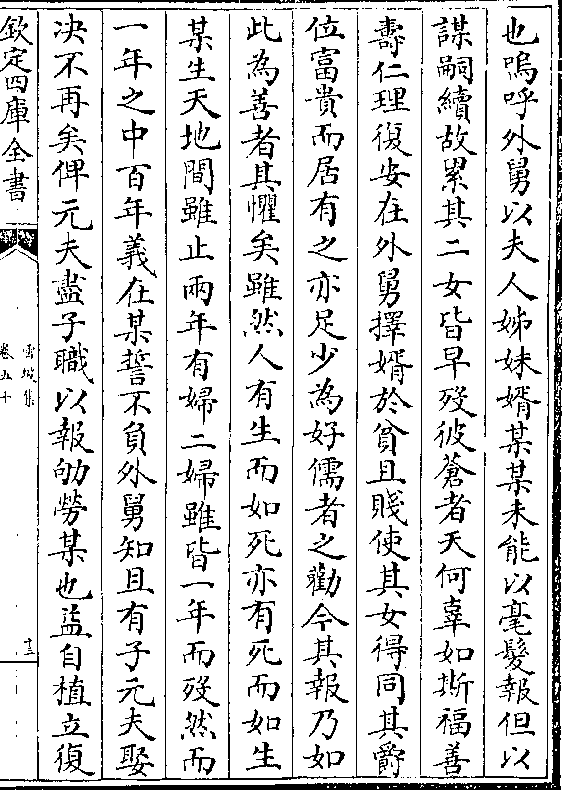 也嗚呼外舅以夫人姊妹婿某某未能以毫髮報但以
謀嗣續故累其二女皆早歿彼蒼者天何辜如斯福善
壽仁理復安在外舅擇婿於貧且賤使其女得同其爵
位富貴而居有之亦足少為好儒者之勸今其報乃如
此為善者其懼矣雖然人有生而如死亦有死而如生
某生天地間雖止兩年有婦二婦雖皆一年而歿然而
一年之中百年義在某誓不負外舅知且有子元夫娶
决不再矣俾元夫盡子職以報劬勞某也益自植立復
欽定四庫全書
雪坡集
卷五十
十三